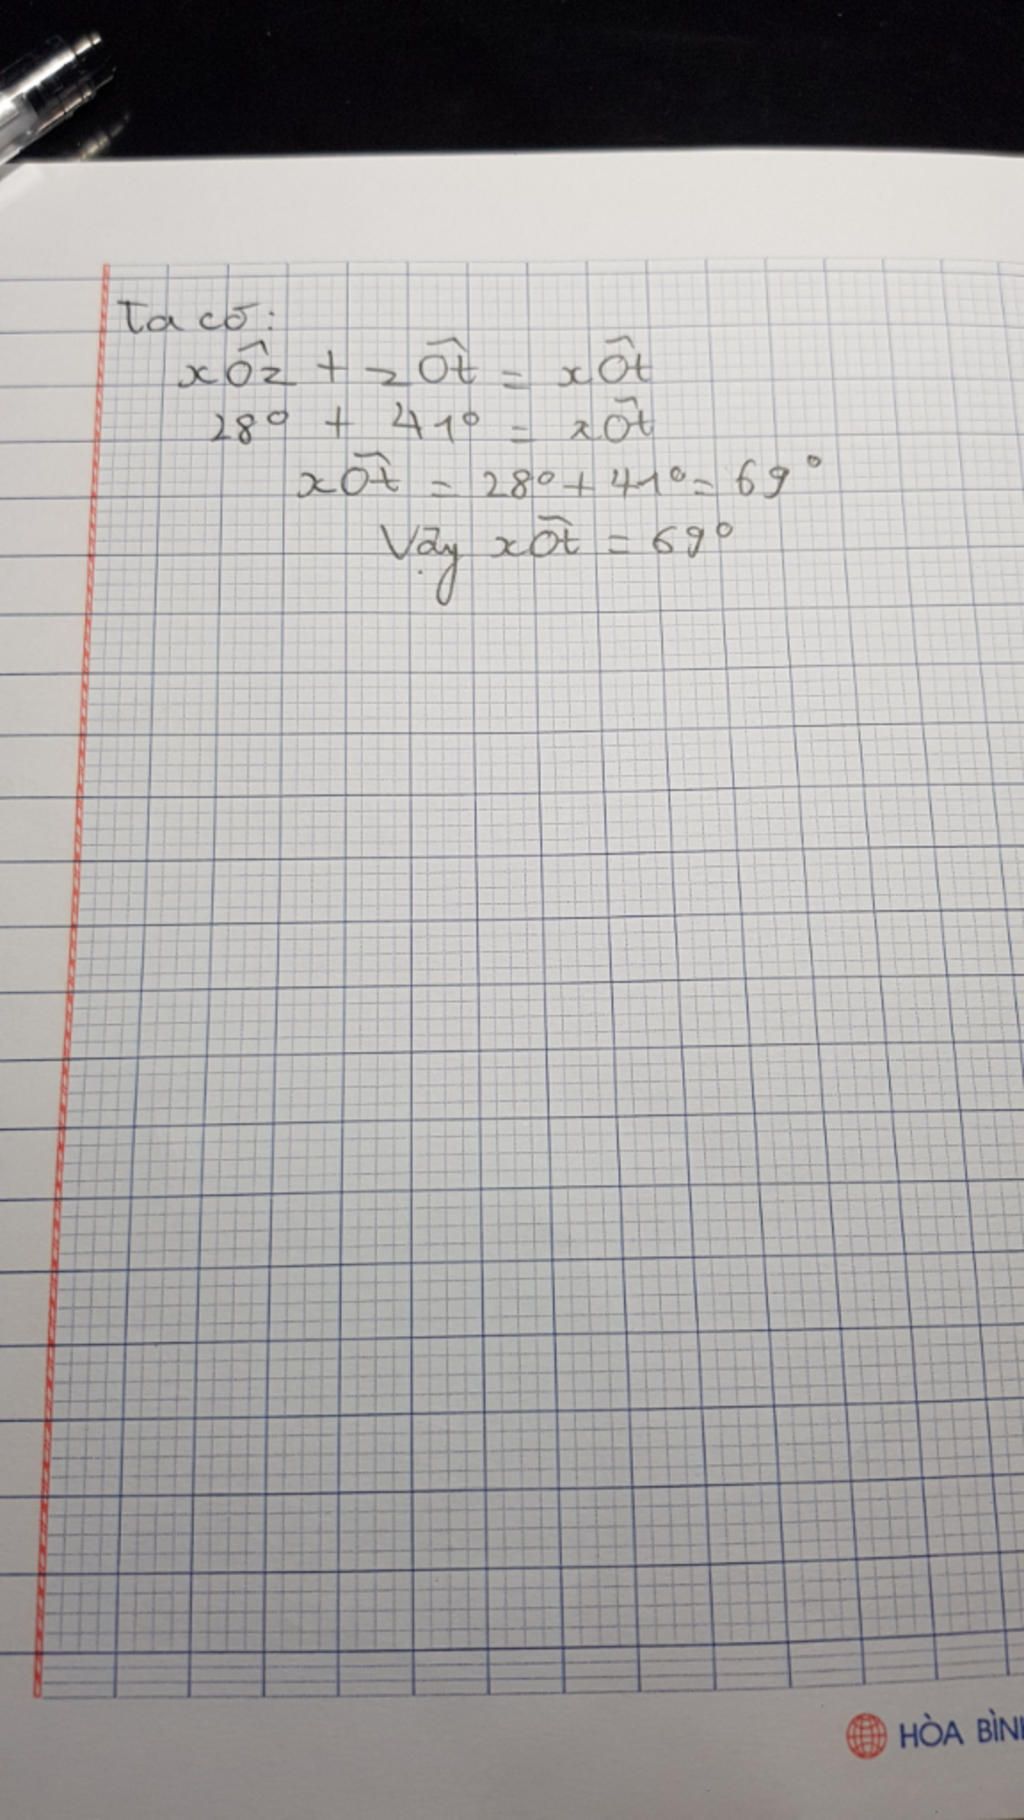 Ta có:
xÔz + zÔt = xÔt
28° + 41° = xÔt
xÔt = 28° + 41° = 69°
Vậy xÔt = 69°
HÒA BÌNH